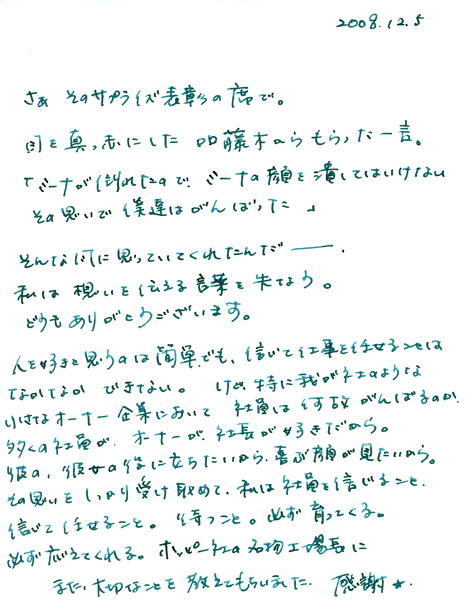 2008.12.5
さぁ そのサプライズ表彰の席で。
目を真っ赤にした 加藤木からもらった一言。
「ミーナが倒れたので、ミーナの顔を潰してはいけない
その思いで僕達はがんばった」
そんな風に思っていてくれたんだ――.
私は 想いを伝える言葉を失なう。
どうもありがとうございます。
人を好きと思うのは簡単でも、信じて仕事を任せることは
なかなか できない。 けど特に我が社のような
小さなオーナー企業において 社員は何故がんばるのか
多くの社員が、オーナーが、社長が好きだから。
彼の、彼女の役に立ちたいから、喜ぶ顔が見たいから。
その思いをしっかり受け取めて、私は社員を信じること、
信じて任せること。 待つこと。必ず育ってくる。
必ず応えてくれる。ホッピー社の名物工場長に
また、大切なことを教えてもらいました. 感謝★.